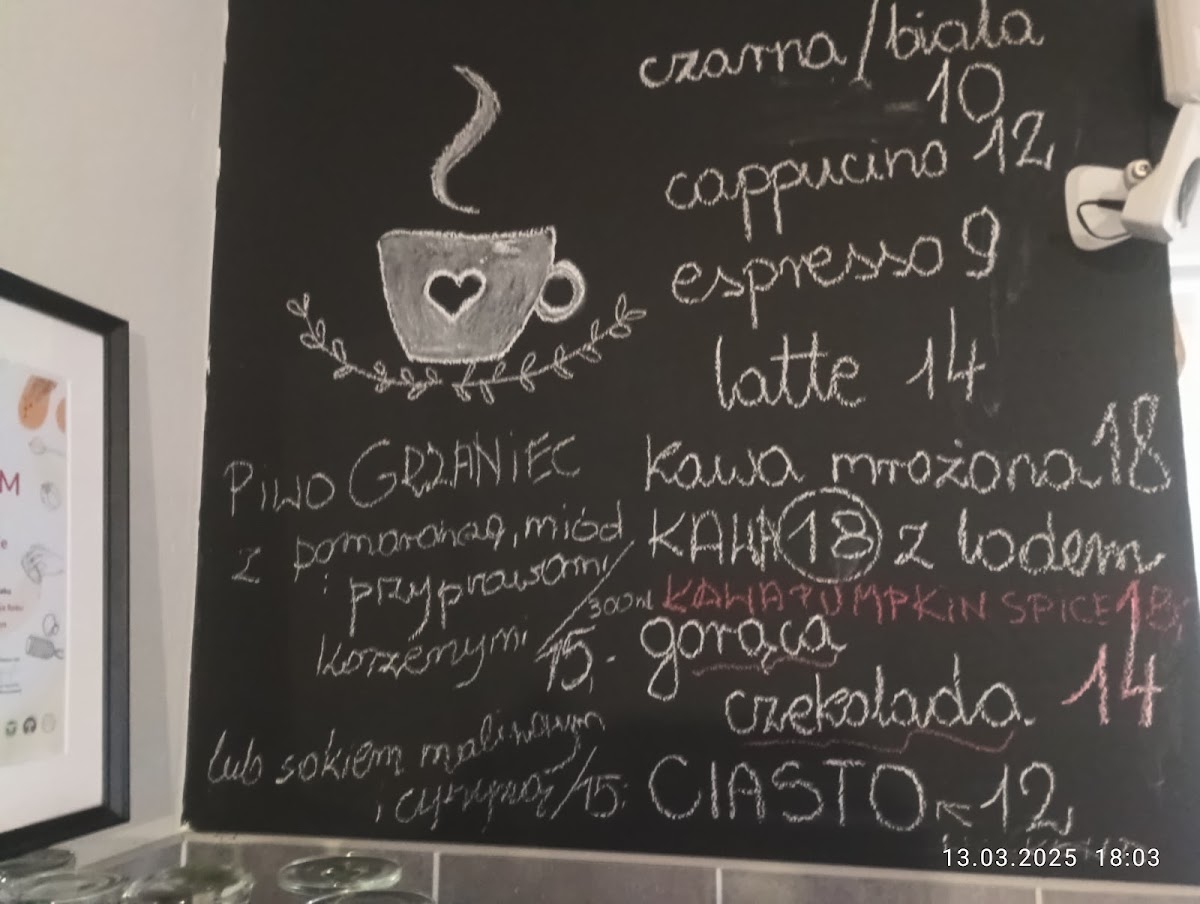 czarna/biała
10
cappucino 12
espresso 9
latte 14
kawa mrożona 18
KAWA 18 z lodem
KAWA PUMPKIN SPICE 18
gorąca
czekolada 14
CIASTO 12
PIWO GRZANIEC
z pomarańczą, miód
i przyprawami
korzennymi /300ml
15,-
lub sokiem malinowym
i cytryną /15,-
M
13.03.2025 18:03